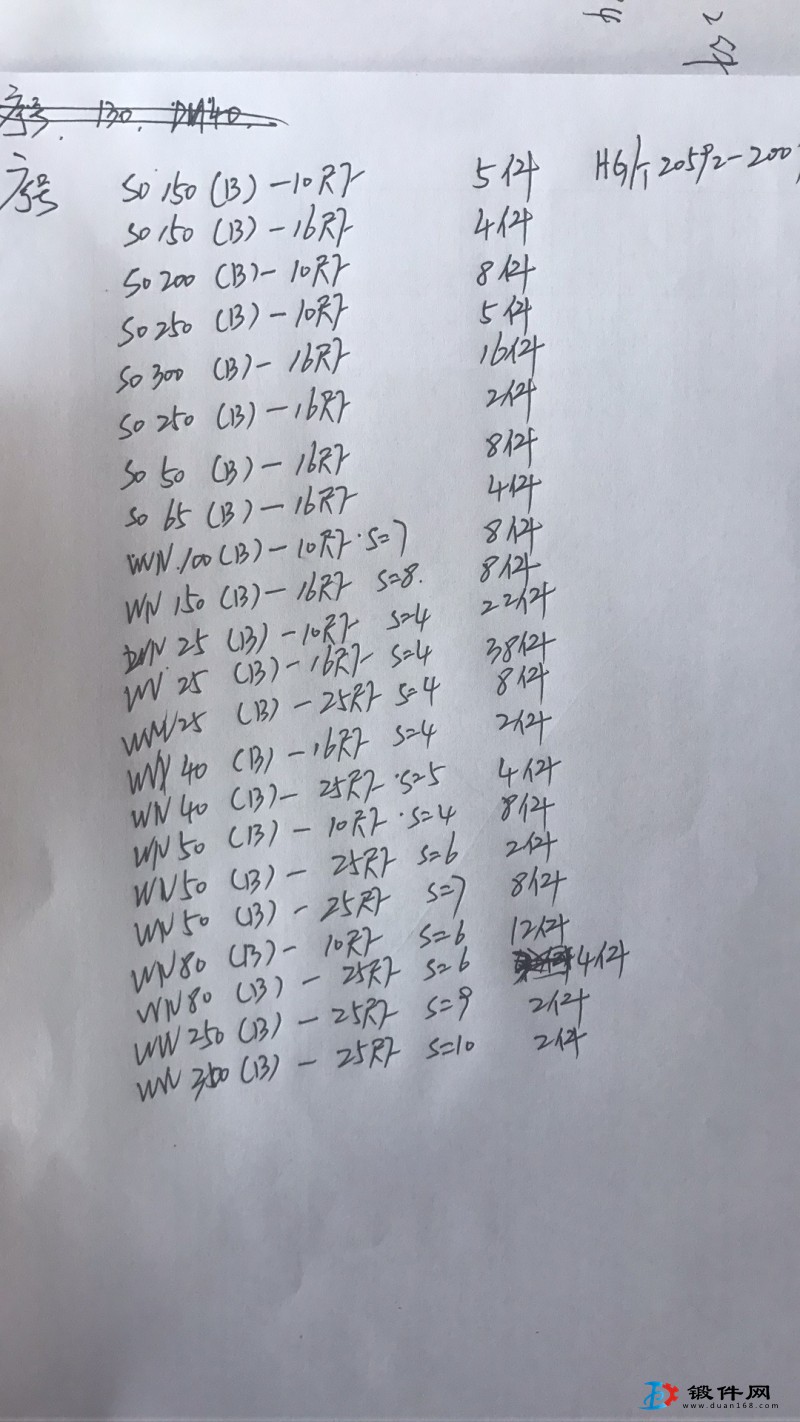 序号. 130. DN40.
序号 SO 150 (B) - 10 RF 5件 HG/T 20592-200
SO 150 (B) - 16RF 4件
SO 200 (B) - 10RF 8件
SO 250 (B) - 10RF 5件
SO 300 (B) - 16RF 16件
SO 250 (B) - 16RF 2件
SO 50 (B) - 16RF 8件
SO 65 (B) - 16RF 4件
WN 100 (B) - 10RF S=7 8件
WN 150 (B) - 16RF S=8. 8件
WN 25 (B) - 10RF S=4 22件
WN 25 (B) - 16RF S=4 38件
WN 25 (B) - 25RF S=4 8件
WN 40 (B) - 16RF S=4 2件
WN 40 (B) - 25RF S=5 4件
WN 50 (B) - 10RF S=4 8件
WN 50 (B) - 25RF S=6 2件
WN 50 (B) - 25RF S=7 8件
WN 80 (B) - 10RF S=6 12件
WN 80 (B) - 25RF S=6 4件
WN 250 (B) - 25RF S=9 2件
WN 350 (B) - 25RF S=10 2件
锻件网
www.duan168.com